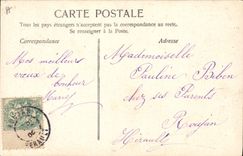 CARTE POSTALE
Tous les pays étrangers n'acceptent pas la correspondance au recto,
Se renseigner à la Poste.
Correspondance
Adresse
Mes meilleurs
vœux de
bonheur
Mademoiselle
Pauline
chez ses Parents
Roujan
Hérault